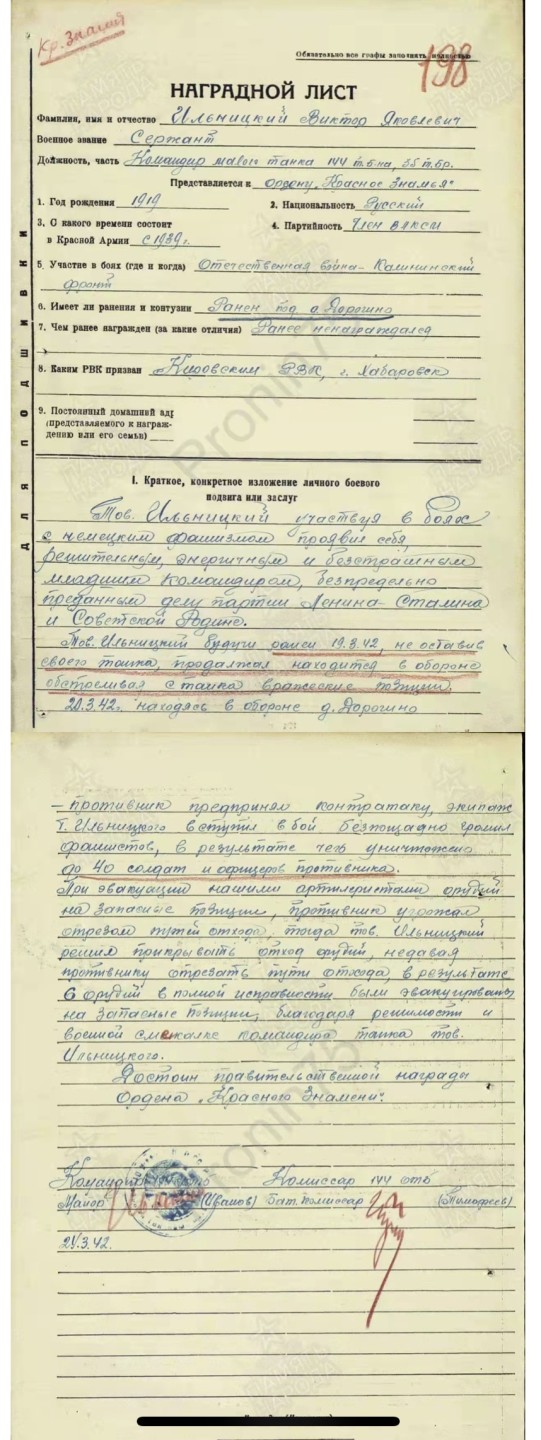 Кр. Знамя
Обязательно все графы заполнять полностью
198
НАГРАДНОЙ ЛИСТ
Фамилия, имя и отчество Ильницкий Виктор Яковлевич
Военное звание Сержант
Должность, часть Командир малого танка 144 т.б-на, 35 т.бр.
Представляется к Ордену „Красное Знамья"
1. Год рождения 1919 2. Национальность Русский
3. С какого времени состоит 4. Партийность Член ВЛКСМ
в Красной Армии с 1939 г.
5. Участие в боях (где и когда) Отечественная война - Калининский
фронт
6. Имеет ли ранения и контузии Ранен под д. Дорогино
7. Чем ранее награжден (за какие отличия) Ранее ненаграждался
8. Каким РВК призван Кировским РВК, г. Хабаровск
9. Постоянный домашний адр
(представляемого к награж-
дению или его семьи)
ДЛЯ ПОДШИВКИ
I. Краткое, конкретное изложение личного боевого
подвига или заслуг
Тов. Ильницкий участвуя в боях
с немецким фашизмом проявил себя
решительным, энергичным и безстрашным
младшим командиром, безпредельно
преданным делу партии Ленина-Сталина
и Советской Родине.
Тов. Ильницкий будучи ранен 19.3.42, не оставив
своего танка, продолжал находится в обороне
обстреливая с танка вражеские позиции.
20.3.42г. находясь в обороне д. Дорогино
- противник предпринял контратаку, экипаж
т. Ильницкого вступил в бой безпощадно громил
фашистов, в результате чего уничтожено
до 40 солдат и офицеров противника.
При эвакуации нашими артилеристами орудий
на запасные позиции, противник угрожал
отрезом путей отхода, тогда тов. Ильницкий
решил прикрывать отход орудий, недавая
противнику отрезать пути отхода, в результате
6 орудий в полной исправности были эвакуированы
на запасные позиции, благодаря решимости и
военной смекалке командира танка тов.
Ильницкого.
Достоин правительственной награды
Ордена „Красного Знамени".
Командир 144 отб Комиссар 144 отб
Майор (Иванов) Бат. Комиссар (Тимофеев)
24.3.42.
Pronin75
ПАМЯТЬ НАРОДА